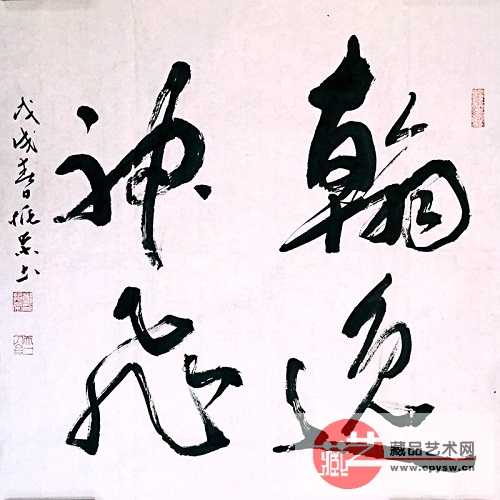 翰逸
神飞
戊戌春日
藏艺
藏品艺术网
www.cpysw.cn